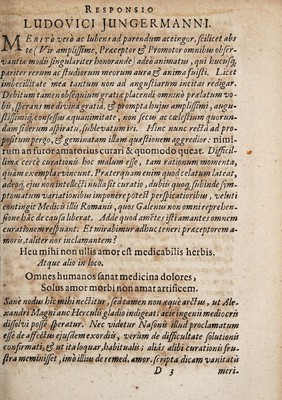 RESPONSIO
LUDOVICI JUNGERMANNI.
MERITÒ verò ac lubens ad parendum accingor, scilicet abs
te (Vir amplissime, Præceptor & Promotor omnibus obser-
vantiæ modis singulariter honorande) adeò animatus, qui hucusq;
pariter rerum ac studiorum meorum aura & anima fuisti. Licet
imbecillitate mea tantum non ad angustiarum incitas redigar.
Debitum autem obsequium gratiæ placendi omnino prælatum vo-
bis, sperans me divina gratia, & prompta hujus amplissimi, augu-
stissimiq; consessus æquanimitate, non secus ac cœlestium quorun-
dam siderum aspiratu, sublevatum iri. Hinc nunc rectà ad pro-
positum pergo, & geminatam illam quæstionem aggredior: nimi-
rum an furor amatorius curari & quomodo queat. Difficil-
lima certè curationis hoc malum esse, tam rationum momenta,
quàm exempla vincunt. Præterquam enim quod celatum lateat,
adeoq; ejus non intellecti nulla sit curatio, dubiis quoq; subinde sym-
ptomatum variationibus imponere potest perspicatioribus, veluti
contingit Medico illi Romanis, quos Galenus non omni reprehen-
sione hâc de causa liberat. Adde quod amētes isti amantes omnem
curationem respuant. Et mirabimur adhuc teneri præceptorem a-
moris, taliter nos inclamantem?
Heu mihi non ullis amor est medicabilis herbis.
Atque alio in loco.
Omnes humanos sanat medicina dolores,
Solus amor morbi non amat artificem.
Sanè nodus hîc mihi nectitur, sed tamen non æque arctus, ut Ale-
xandri Magni aut Herculis gladio indigeat; aut ingenii mediocris
dissolvi posse speratur. Nec videtur Nasonis illud proclamatum
esse de affectus ejusdem exordiis, verùm de difficultate solutionis
confirmati, & ut ita loquar, habitualis: aliàs alibi curationis fru-
stra meminisset, imò illius de remed. amor. scripta dicam vanitatis
D 3
meri-